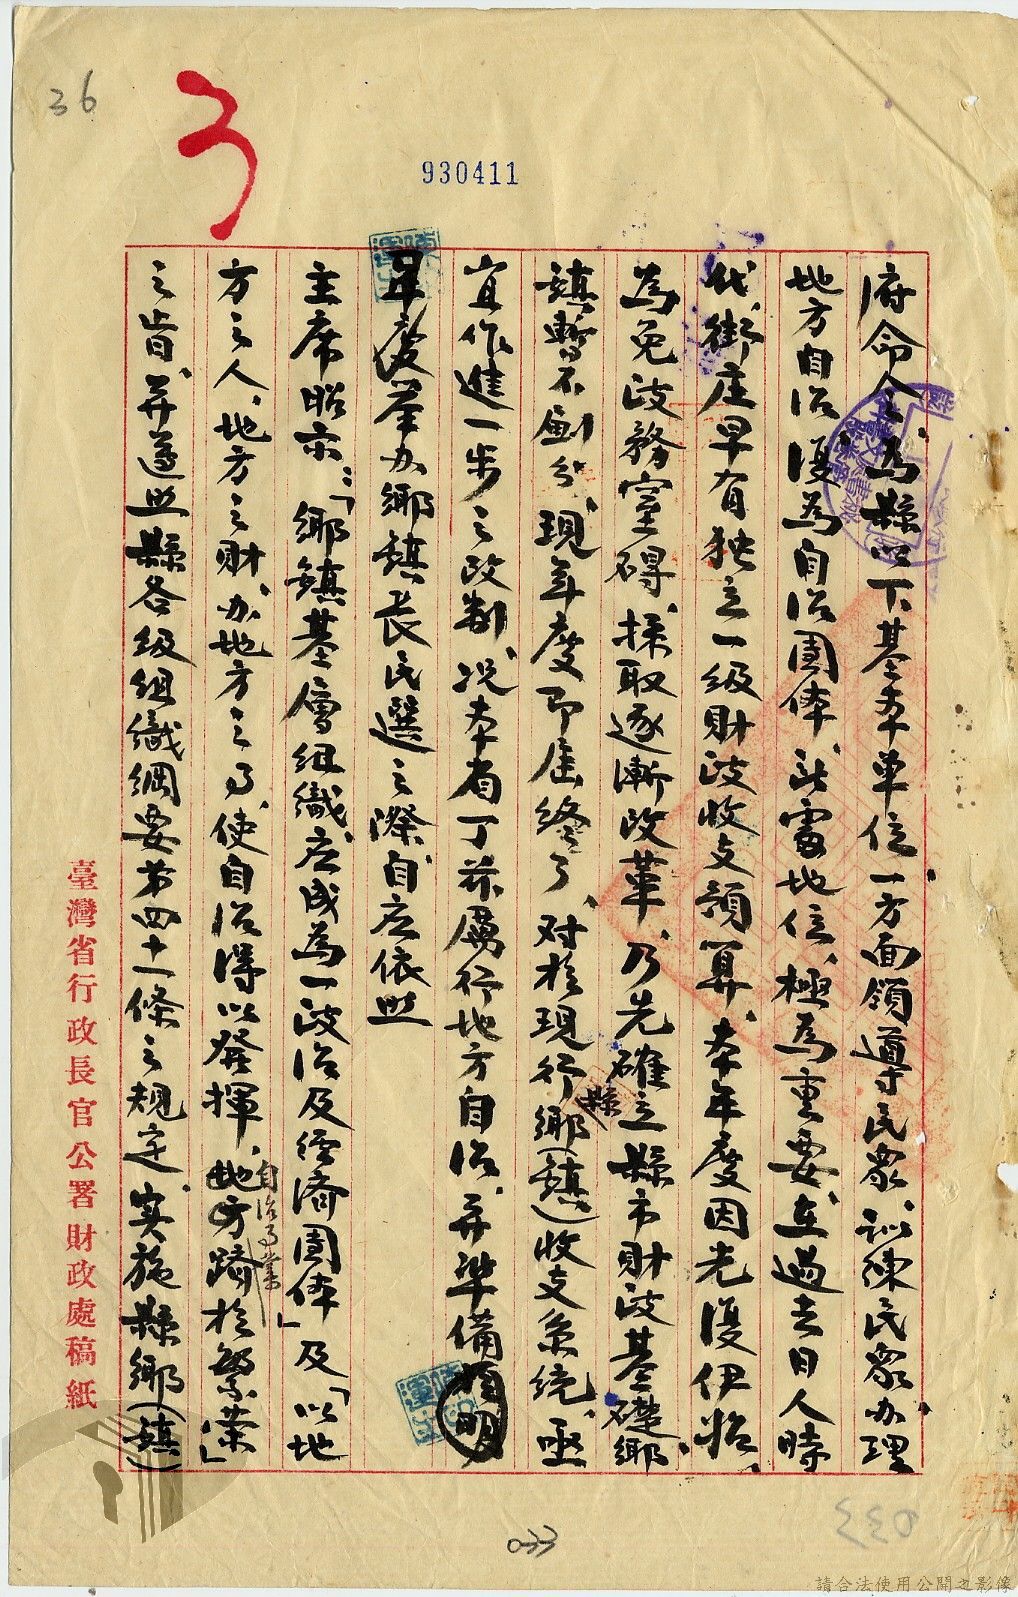 36
930411
府命令之、為縣以下基本單位、一方面領導民眾、訓練民眾、办理
地方自治、復為自治團体、所處地位、極為重要、在過去日人時
代、街庄早有独立一級財政收支預算、本年度因光復伊始、
為免政務窒碍、採取逐漸改革、乃先確立縣市財政基礎、鄉
鎮暫不劃分、現年度即屆終了、对於現行縣鄉(鎮)收支系統、亟
宜作進一步之改制、況本省丁茲厲行地方自治、并準備
年度举办鄉鎮長民選之際、自应依照
主席昭示:「鄉鎮基層組織、应成為一政治及經濟團体」及「以地
方之人、地方之財、办地方之事、使自治得以發揮、地方自治事業躋於繁荣」
之旨、并遵照縣各級組織綱要第四十一條之規定、實施縣鄉(鎮)
臺灣省行政長官公署財政處稿紙
033
033
請合法使用公開之影像